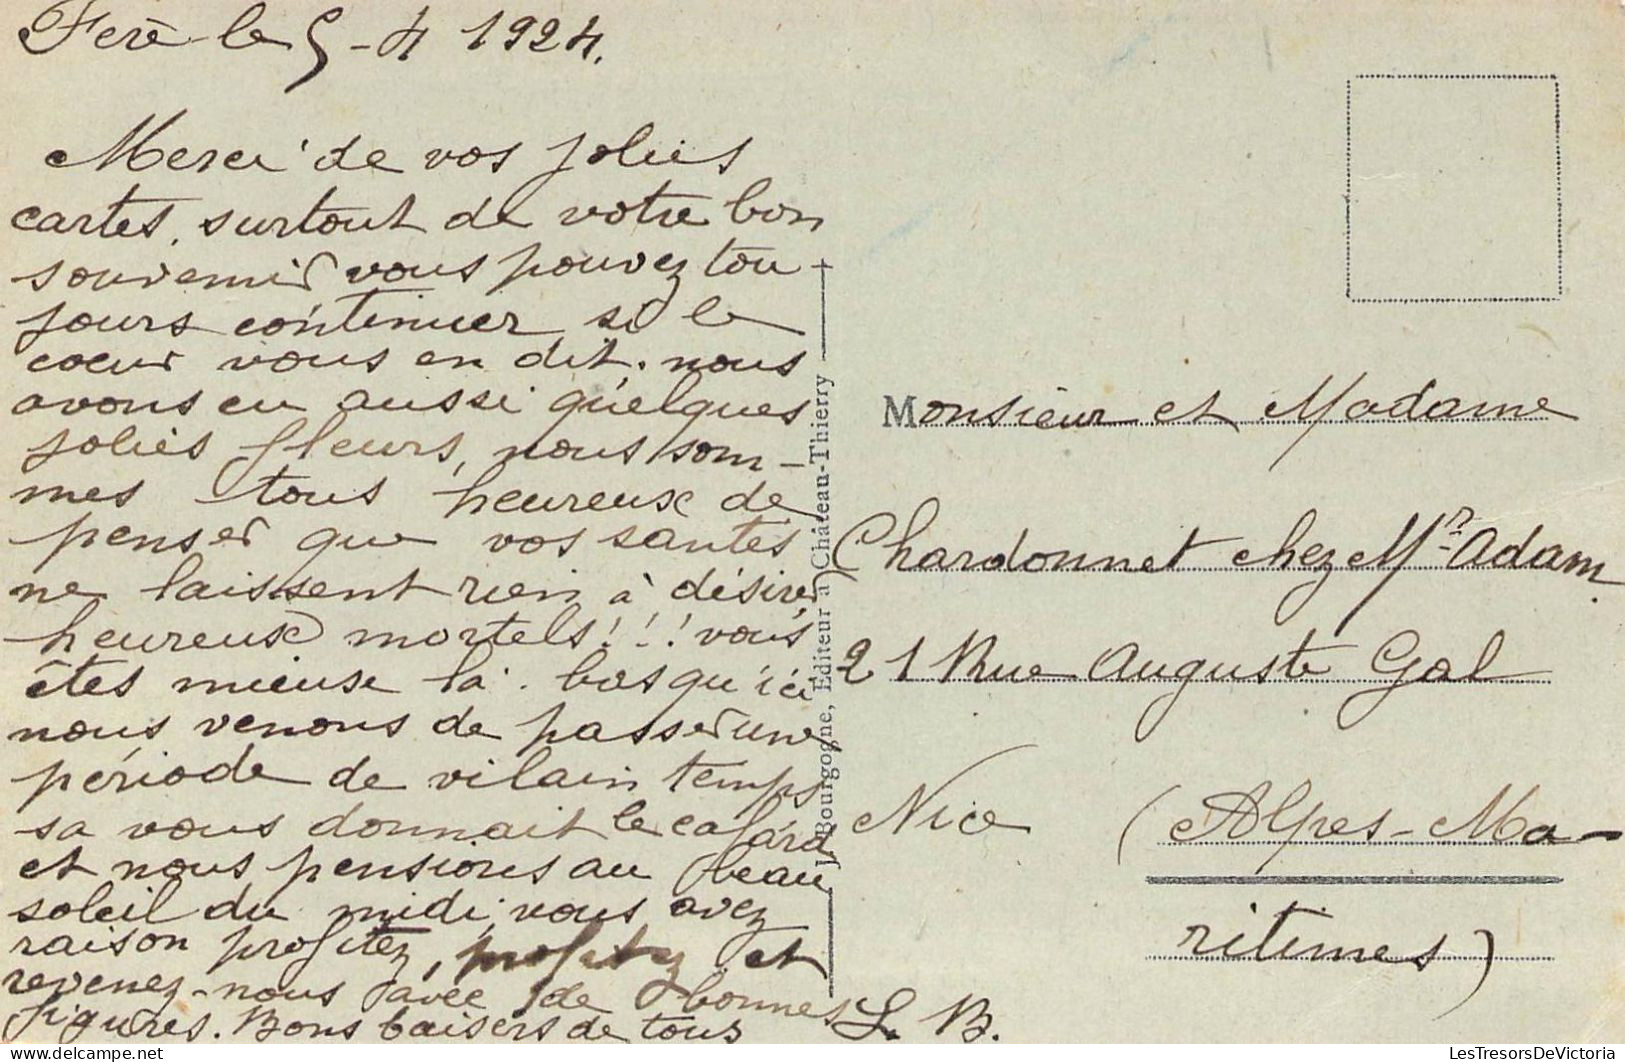 Fère le 5-4 1924.
Merci de vos jolies
cartes, surtout de votre bon
souvenir vous pouvez tou-
jours continuer si le
coeur vous en dit. nous
avons eu aussi quelques
jolies fleurs, nous som-
mes tous heureux de
penser que vos santés
ne laissent rien à désirer
heureux mortels!!! vous
êtes mieuse là-bas qu'ici
nous venons de passer une
période de vilain temps
sa vous donnait le cafard
et nous pensions au beau
soleil du midi, vous avez
raison profitez, profitez et
revenez-nous avec de bonnes
figures. Bons baisers de tous
L. B.
J. Bourgogne, Editeur à Château-Thierry
Monsieur et Madame
Chardonnet chez Mr Adam
21 Rue Auguste Gal
Nice (Alpes-Ma-
ritimes)
LesTresorsDeVictoria
www.delcampe.net